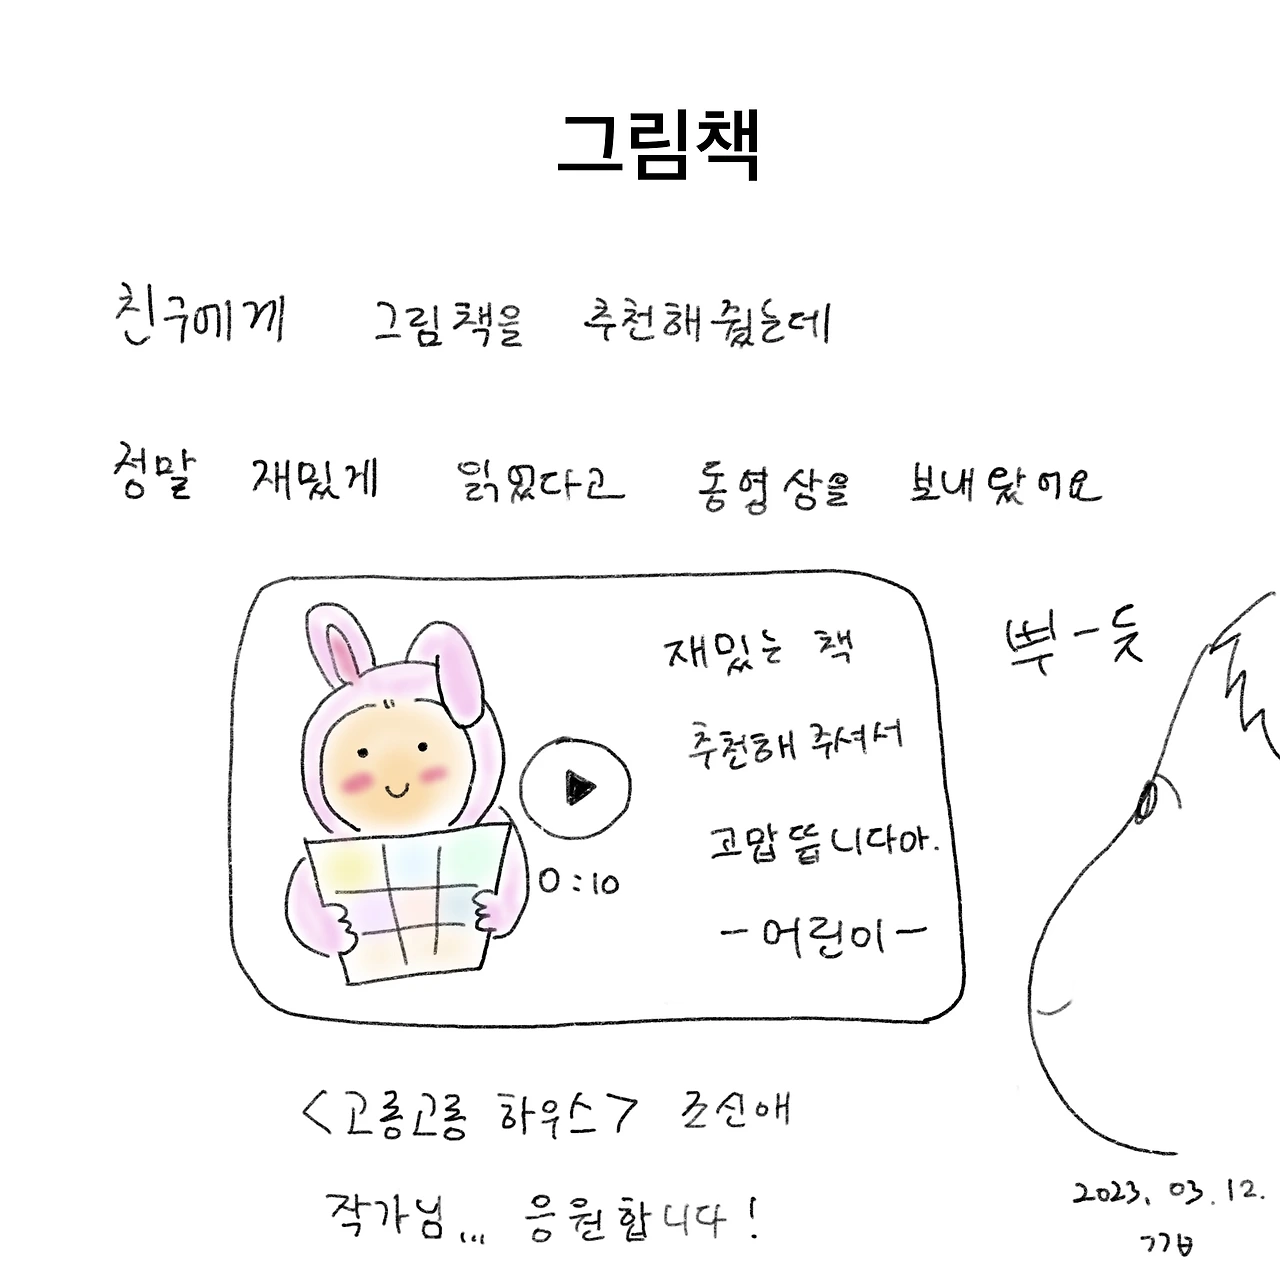 그림책
친구에게 그림책을 추천해줬는데
정말 재밌게 읽었다고 동영상을 보내왔어요
재밌는 책
추천해 주셔서
고맙뜹니다아.
-어린이-
0:10
뿌-듯
<고롱고롱 하우스> 조신애
작가님... 응원합니다!
2023. 03. 12.